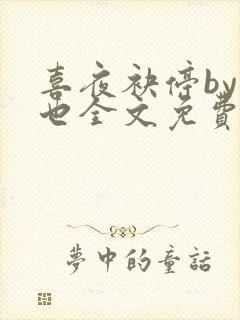 喜夜袂停by
也全文免費
夢中的童話